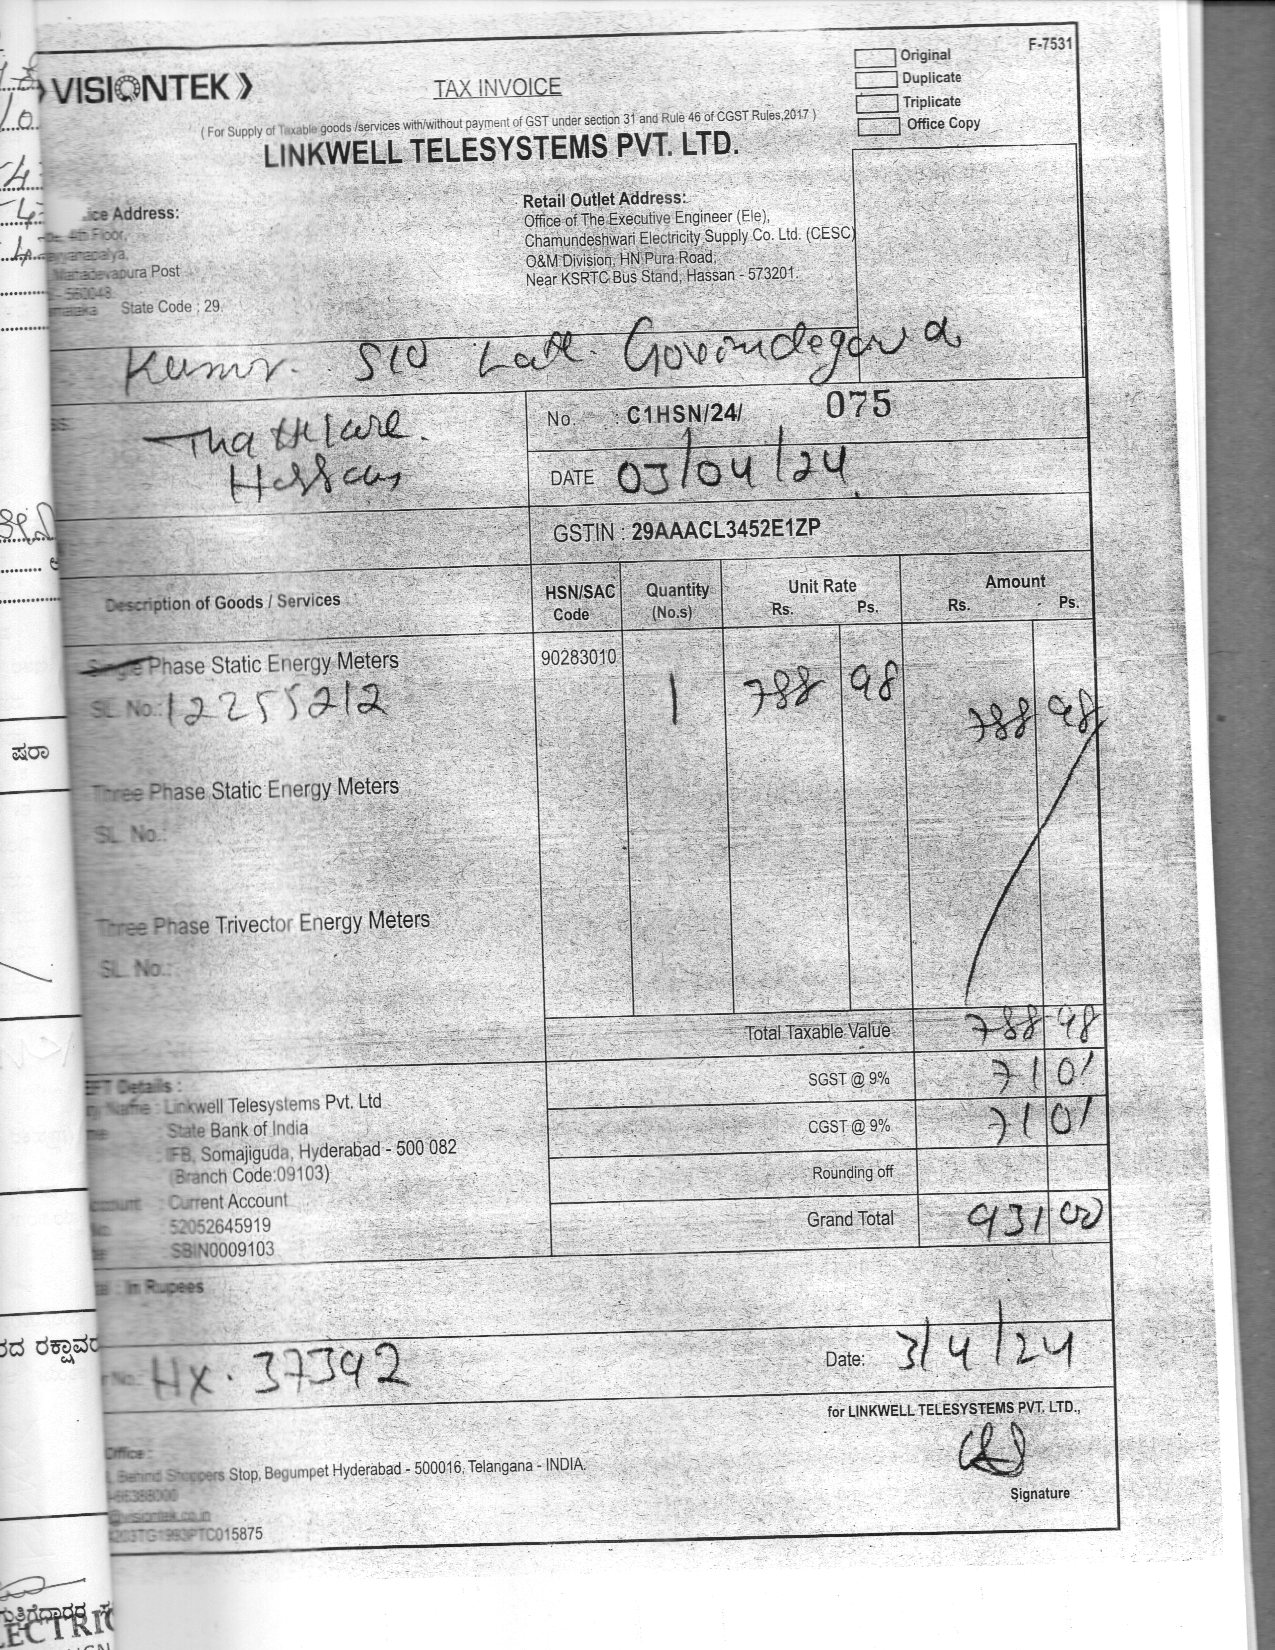 F-7531
VISIONTEK
TAX INVOICE
Original
Duplicate
Triplicate
Office Copy
( For Supply of Taxable goods /services with/without payment of GST under section 31 and Rule 46 of CGST Rules,2017 )
LINKWELL TELESYSTEMS PVT. LTD.
Address:
4th Floor,
Mahadevapura Post
- 560048
State Code : 29.
Retail Outlet Address:
Office of The Executive Engineer (Ele),
Chamundeshwari Electricity Supply Co. Ltd. (CESC)
O&M Division, HN Pura Road,
Near KSRTC Bus Stand, Hassan - 573201.
Kumar. S/O Late. Govindegowda
Hassan
No. : C1HSN/24/ 075
DATE 03/04/24
GSTIN : 29AAACL3452E1ZP
Description of Goods / Services
HSN/SAC Code
Quantity (No.s)
Unit Rate
Rs. Ps.
Amount
Rs. Ps.
Single Phase Static Energy Meters 90283010
SL. No.: 12255212 1 788 98 788 98
Three Phase Static Energy Meters
SL. No.:
Three Phase Trivector Energy Meters
SL. No.:
Total Taxable Value 788 98
SGST @ 9% 71 01
CGST @ 9% 71 01
Rounding off
Grand Total 931 00
Details :
Name : Linkwell Telesystems Pvt. Ltd
: State Bank of India
: IFB, Somajiguda, Hyderabad - 500 082
(Branch Code:09103)
: Current Account
52052645919
SBIN0009103
In Rupees
No.: HX. 37392
Date: 3/4/24
for LINKWELL TELESYSTEMS PVT. LTD.,
Signature
Office :
Behind Shoppers Stop, Begumpet Hyderabad - 500016, Telangana - INDIA.
-66388000
@visiontek.co.in
TG1993PTC015875
ಷರಾ